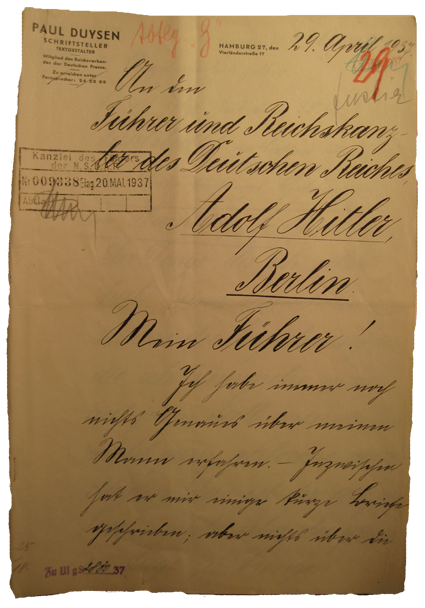 PAUL DUYSEN
SCHRIFTSTELLER
TEXTGESTALTER
Mitglied des Reichsverban-
des der Deutschen Presse.
Zu erreichen unter
HAMBURG 27, den 29. April 1937
Vierländerstraße 17
29
An den
Führer und Reichskanz-
ler des Deutschen Reiches,
Kanzlei des Führers
der N.S.D.A.P.
Nr 009338 Eing. 20. MAI. 1937
Adolf Hitler,
Berlin.
Mein Führer!
Ich habe immer noch
nichts Genaues über meinen
Mann erfahren. – Inzwischen
hat er mir einige kurze Briefe
geschrieben; aber nichts über die
37